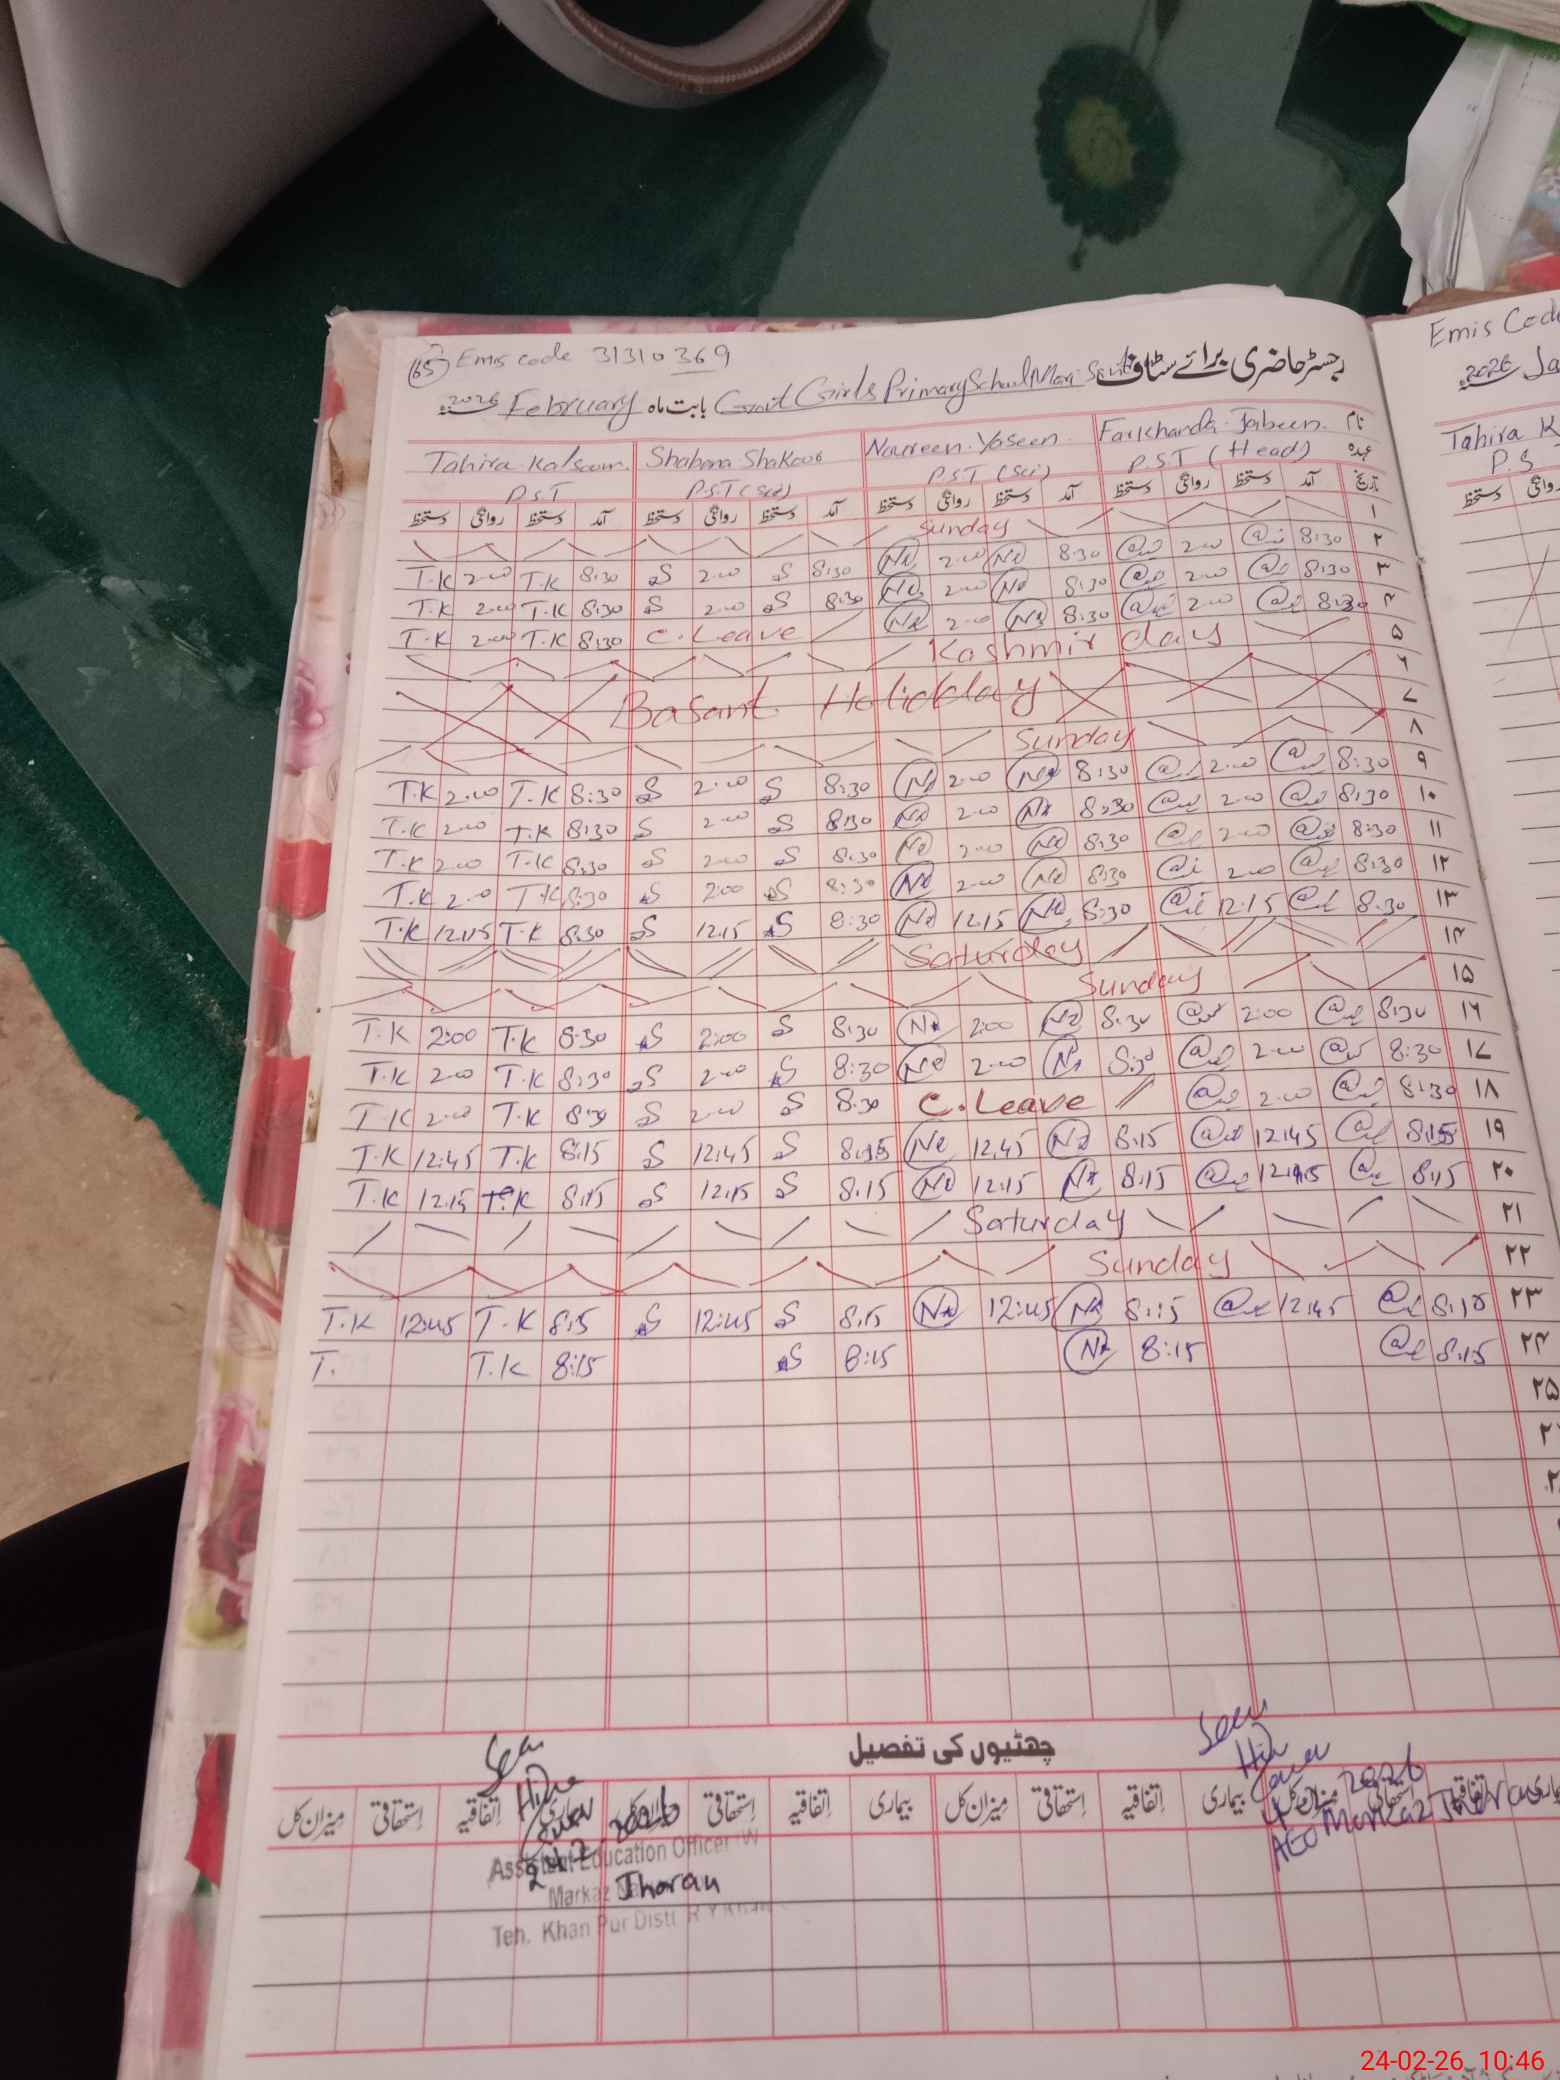 65 Emis code 31310369 رجسٹر حاضری برائے سٹاف
2026 February بابت ماہ Govt Girls Primary School
Tahira Kalsoom. Shabana Shakoor Noureen Yaseen Farkhanda Jabeen. نام
P.S.T P.S.T (Sci) P.S.T (Sci) P.S.T (Head) عہدہ
دستخط روانگی دستخط آمد دستخط روانگی دستخط آمد دستخط روانگی دستخط آمد دستخط روانگی دستخط آمد تاریخ
Sunday ۱
T.K 2.00 T.K 8:30 S 2.00 S 8:30 2.00 8:30 2.00 8:30 ۲
T.K 2.00 T.K 8:30 S 2.00 S 8:30 2.00 8:30 2.00 8:30 ۳
T.K 2.00 T.K 8:30 C.Leave 2.00 8:30 2.00 8:30 ۴
Kashmir day ۵
۶
Basant Holidday ۷
Sunday ۸
T.K 2.00 T.K 8:30 S 2.00 S 8:30 2.00 8:30 2.00 8:30 ۹
T.K 2.00 T.K 8:30 S 2.00 S 8:30 2.00 8:30 2.00 8:30 ۱۰
T.K 2.00 T.K 8:30 S 2.00 S 8:30 2.00 8:30 2.00 8:30 ۱۱
T.K 2.00 T.K 8:30 S 2:00 S 8:30 2.00 8:30 2.00 8:30 ۱۲
T.K 12:15 T.K 8:30 S 12.15 S 8:30 12.15 8:30 12:15 8:30 ۱۳
Saturday ۱۴
Sunday ۱۵
T.K 2:00 T.K 8:30 S 2:00 S 8:30 2:00 8:30 2:00 8:30 ۱۶
T.K 2.00 T.K 8:30 S 2.00 S 8:30 2.00 8:30 2.00 8:30 ۱۷
T.K 2.00 T.K 8:30 S 2.00 S 8:30 C.Leave 2.00 8:30 ۱۸
T.K 12:45 T.K 8:15 S 12:45 S 8:15 12.45 8:15 12:45 8:15 ۱۹
T.K 12:15 T.K 8:15 S 12:15 S 8.15 12:15 8:15 8:15 ۲۰
Saturday ۲۱
Sunday ۲۲
T.K 12:45 T.K 8:15 S 12:45 S 8.15 12:45 8:15 12:45 8:15 ۲۳
T. T.K 8:15 S 8:15 8:15 8:15 ۲۴
۲۵
چھٹیوں کی تفصیل
میزان کل استحقاقی اتفاقیہ استحقاقی اتفاقیہ بیماری میزان کل استحقاقی اتفاقیہ بیماری میزان کل استحقاقی اتفاقیہ بیماری
Seen
2026
Assistant Education Officer (W
Markaz Tharan
Teh. Khan Pur Distt R Y Khan
Seen
2026
AEO Markaz Tharan
Emis Code
2026 Ja
Tahira K
P.S
دستخط روانگی
24-02-26 10:46